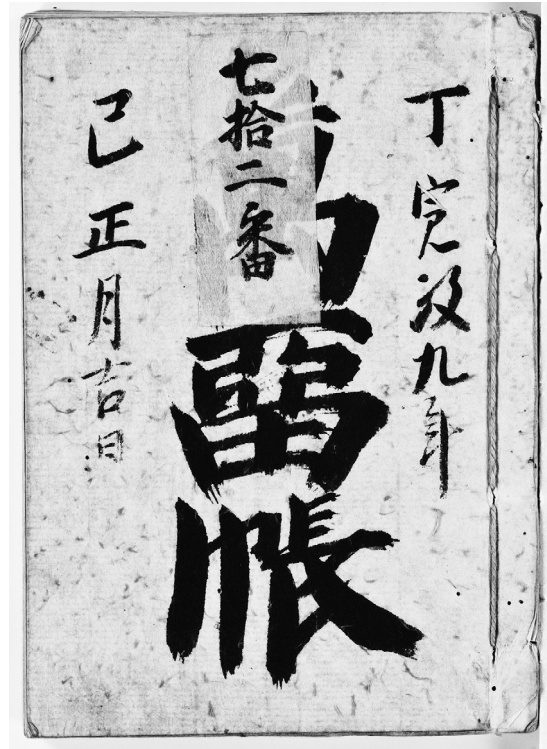 丁 寛政九年
七拾二番
留帳
巳 正月吉日